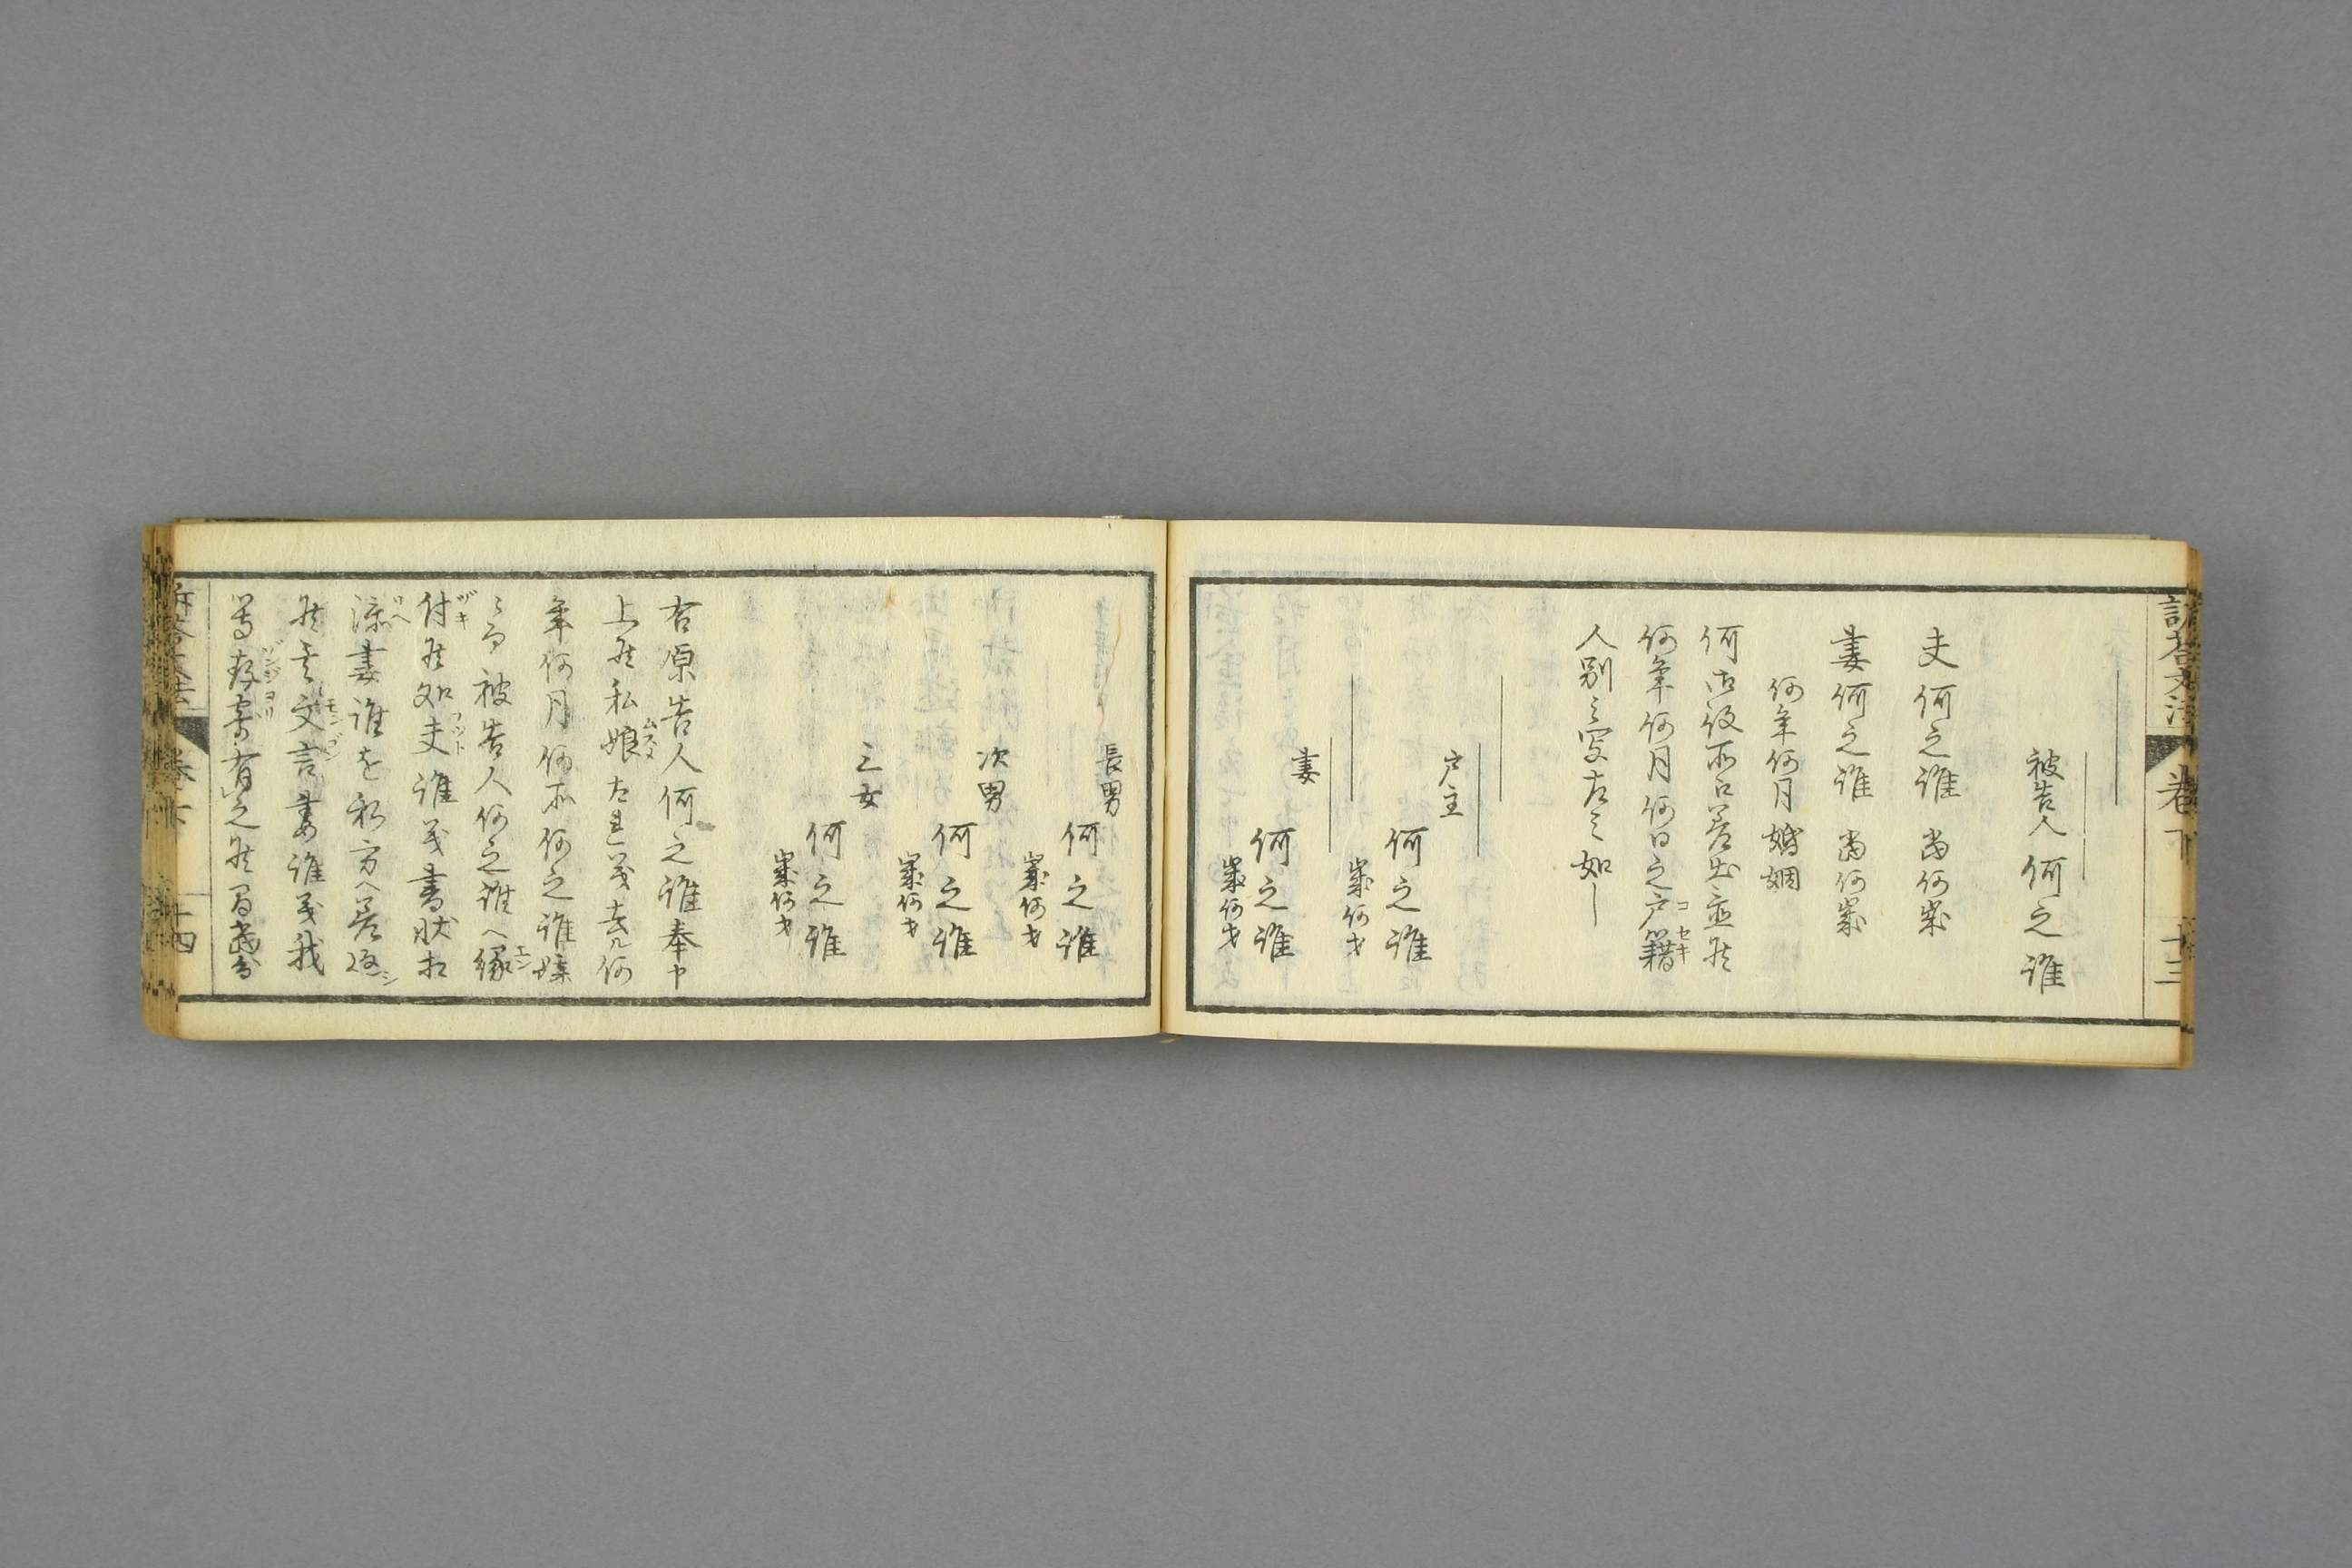 訴答文法 卷下 十三
被告人 何之誰
夫 何之誰 当何歳
妻 何之誰 当何歳
何年何月婚姻
何御役所江差出置候
何年何月何日之戸籍
人別之写左之如し
戸主
何之誰
歳何才
妻
何之誰
歳何才
長男
何之誰
歳何才
次男
何之誰
歳何才
三女
何之誰
歳何才
右原告人何之誰奉申
上候私娘たれ義去ル何
年何月何所何之誰媒
ニ而被告人何之誰へ縁
付候処夫誰義書状相
添妻誰を私方へ差返
候其文言妻誰義我
等存寄有之候間
訴答文法 卷下 十四